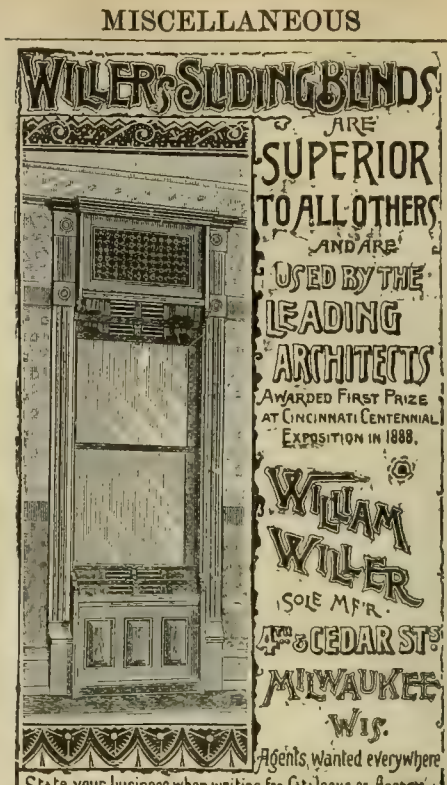 MISCELLANEOUS
WILLER'S SLIDING BLINDS
ARE
SUPERIOR
TO ALL OTHERS
AND ARE
USED BY THE
LEADING
ARCHITECTS
AWARDED FIRST PRIZE
AT CINCINNATI CENTENNIAL
EXPOSITION IN 1888.
WILLIAM
WILLER
SOLE MF'R.
4TH & CEDAR STS
MILWAUKEE
WIS.
Agents, wanted everywhere
State your business when writing for Catalogue or Agency